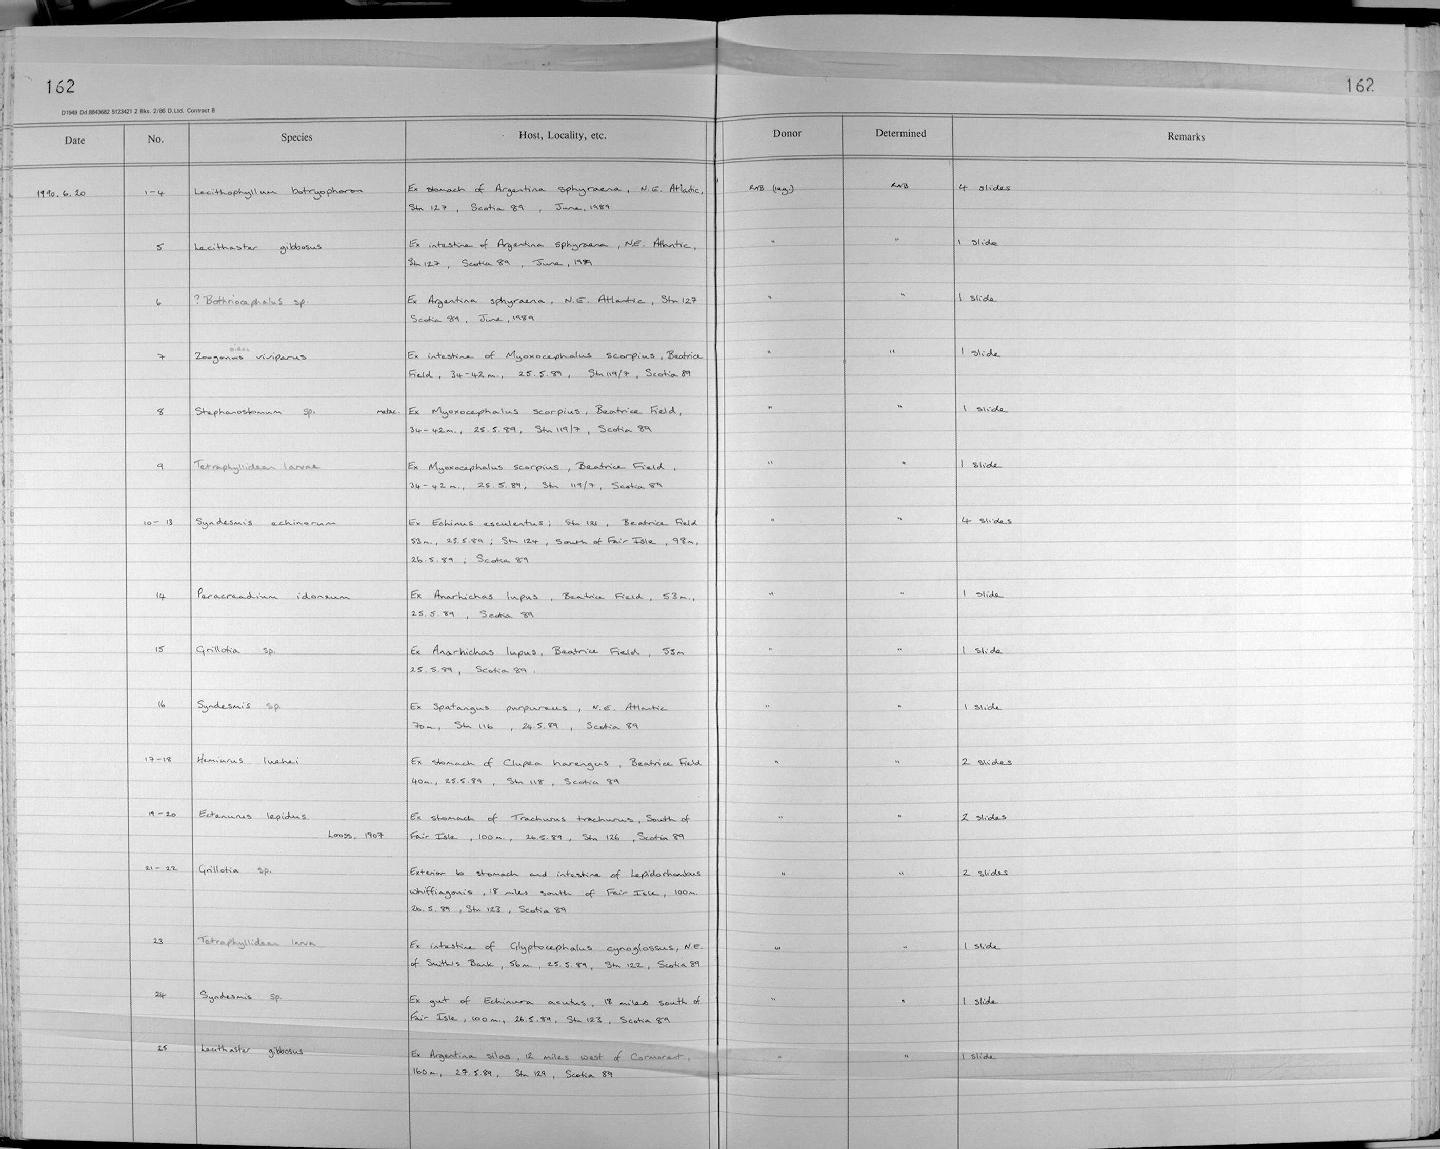 162
162
D1949 Dd 8843682 5123421 2 Bks. 2/86 D.Ltd. Contract 8
Date No. Species Host, Locality, etc. Donor Determined Remarks
1990.6.20 1-4 Lecithophyllum botryophoron Ex stomach of Argentina sphyraena, N.E. Atlantic, RAB (reg.) RAB 4 slides
Stn 127, Scotia 89, June, 1989
5 Lecithaster gibbosus Ex intestine of Argentina sphyraena, N.E. Atlantic, " " 1 slide
Stn 127, Scotia 89, June, 1989
6 ? Bothriocephalus sp. Ex Argentina sphyraena, N.E. Atlantic, Stn 127 " " 1 slide
Scotia 89, June, 1989
7 Zoogonus viviparus Ex intestine of Myoxocephalus scorpius, Beatrice " " 1 slide
Field, 34-42m, 25.5.89, Stn 119/7, Scotia 89
8 Stephanostomum sp. metac. Ex Myoxocephalus scorpius, Beatrice Field, " " 1 slide
34-42m, 25.5.89, Stn 119/7, Scotia 89
9 Tetraphyllidean larvae Ex Myoxocephalus scorpius, Beatrice Field, " " 1 slide
34-42m, 25.5.89, Stn 119/7, Scotia 89
10-13 Syndesmis echinorum Ex Echinus esculentus; Stn 121, Beatrice Field " " 4 slides
53m, 25.5.89; Stn 124, South of Fair Isle, 98m,
26.5.89; Scotia 89
14 Peracreadium idoneum Ex Anarhichas lupus, Beatrice Field, 53m, " " 1 slide
25.5.89, Scotia 89
15 Grillotia sp. Ex Anarhichas lupus, Beatrice Field, 53m " " 1 slide
25.5.89, Scotia 89.
16 Syndesmis sp. Ex Spatangus purpureus, N.E. Atlantic " " 1 slide
70m, Stn 116, 24.5.89, Scotia 89
17-18 Hemiurus luehei Ex stomach of Clupea harengus, Beatrice Field " " 2 slides
40m, 25.5.89, Stn 118, Scotia 89
19-20 Ectenurus lepidus Ex stomach of Trachurus trachurus, South of " " 2 slides
Looss, 1907 Fair Isle, 100m, 26.5.89, Stn 126, Scotia 89
21-22 Grillotia sp. Exterior to stomach and intestine of Lepidorhombus " " 2 slides
whiffiagonis, 18 miles south of Fair Isle, 100m
26.5.89, Stn 123, Scotia 89
23 Tetraphyllidean larva Ex intestine of Glyptocephalus cynoglossus, N.E. " " 1 slide
of Smith's Bank, 56m, 25.5.89, Stn 122, Scotia 89
24 Syndesmis sp. Ex gut of Echinura acutus, 18 miles south of " " 1 slide
Fair Isle, 100m, 26.5.89, Stn 123, Scotia 89
25 Lecithaster gibbosus Ex Argentina silas, 12 miles west of Cormorant, " " 1 slide
160m, 27.5.89, Stn 129, Scotia 89